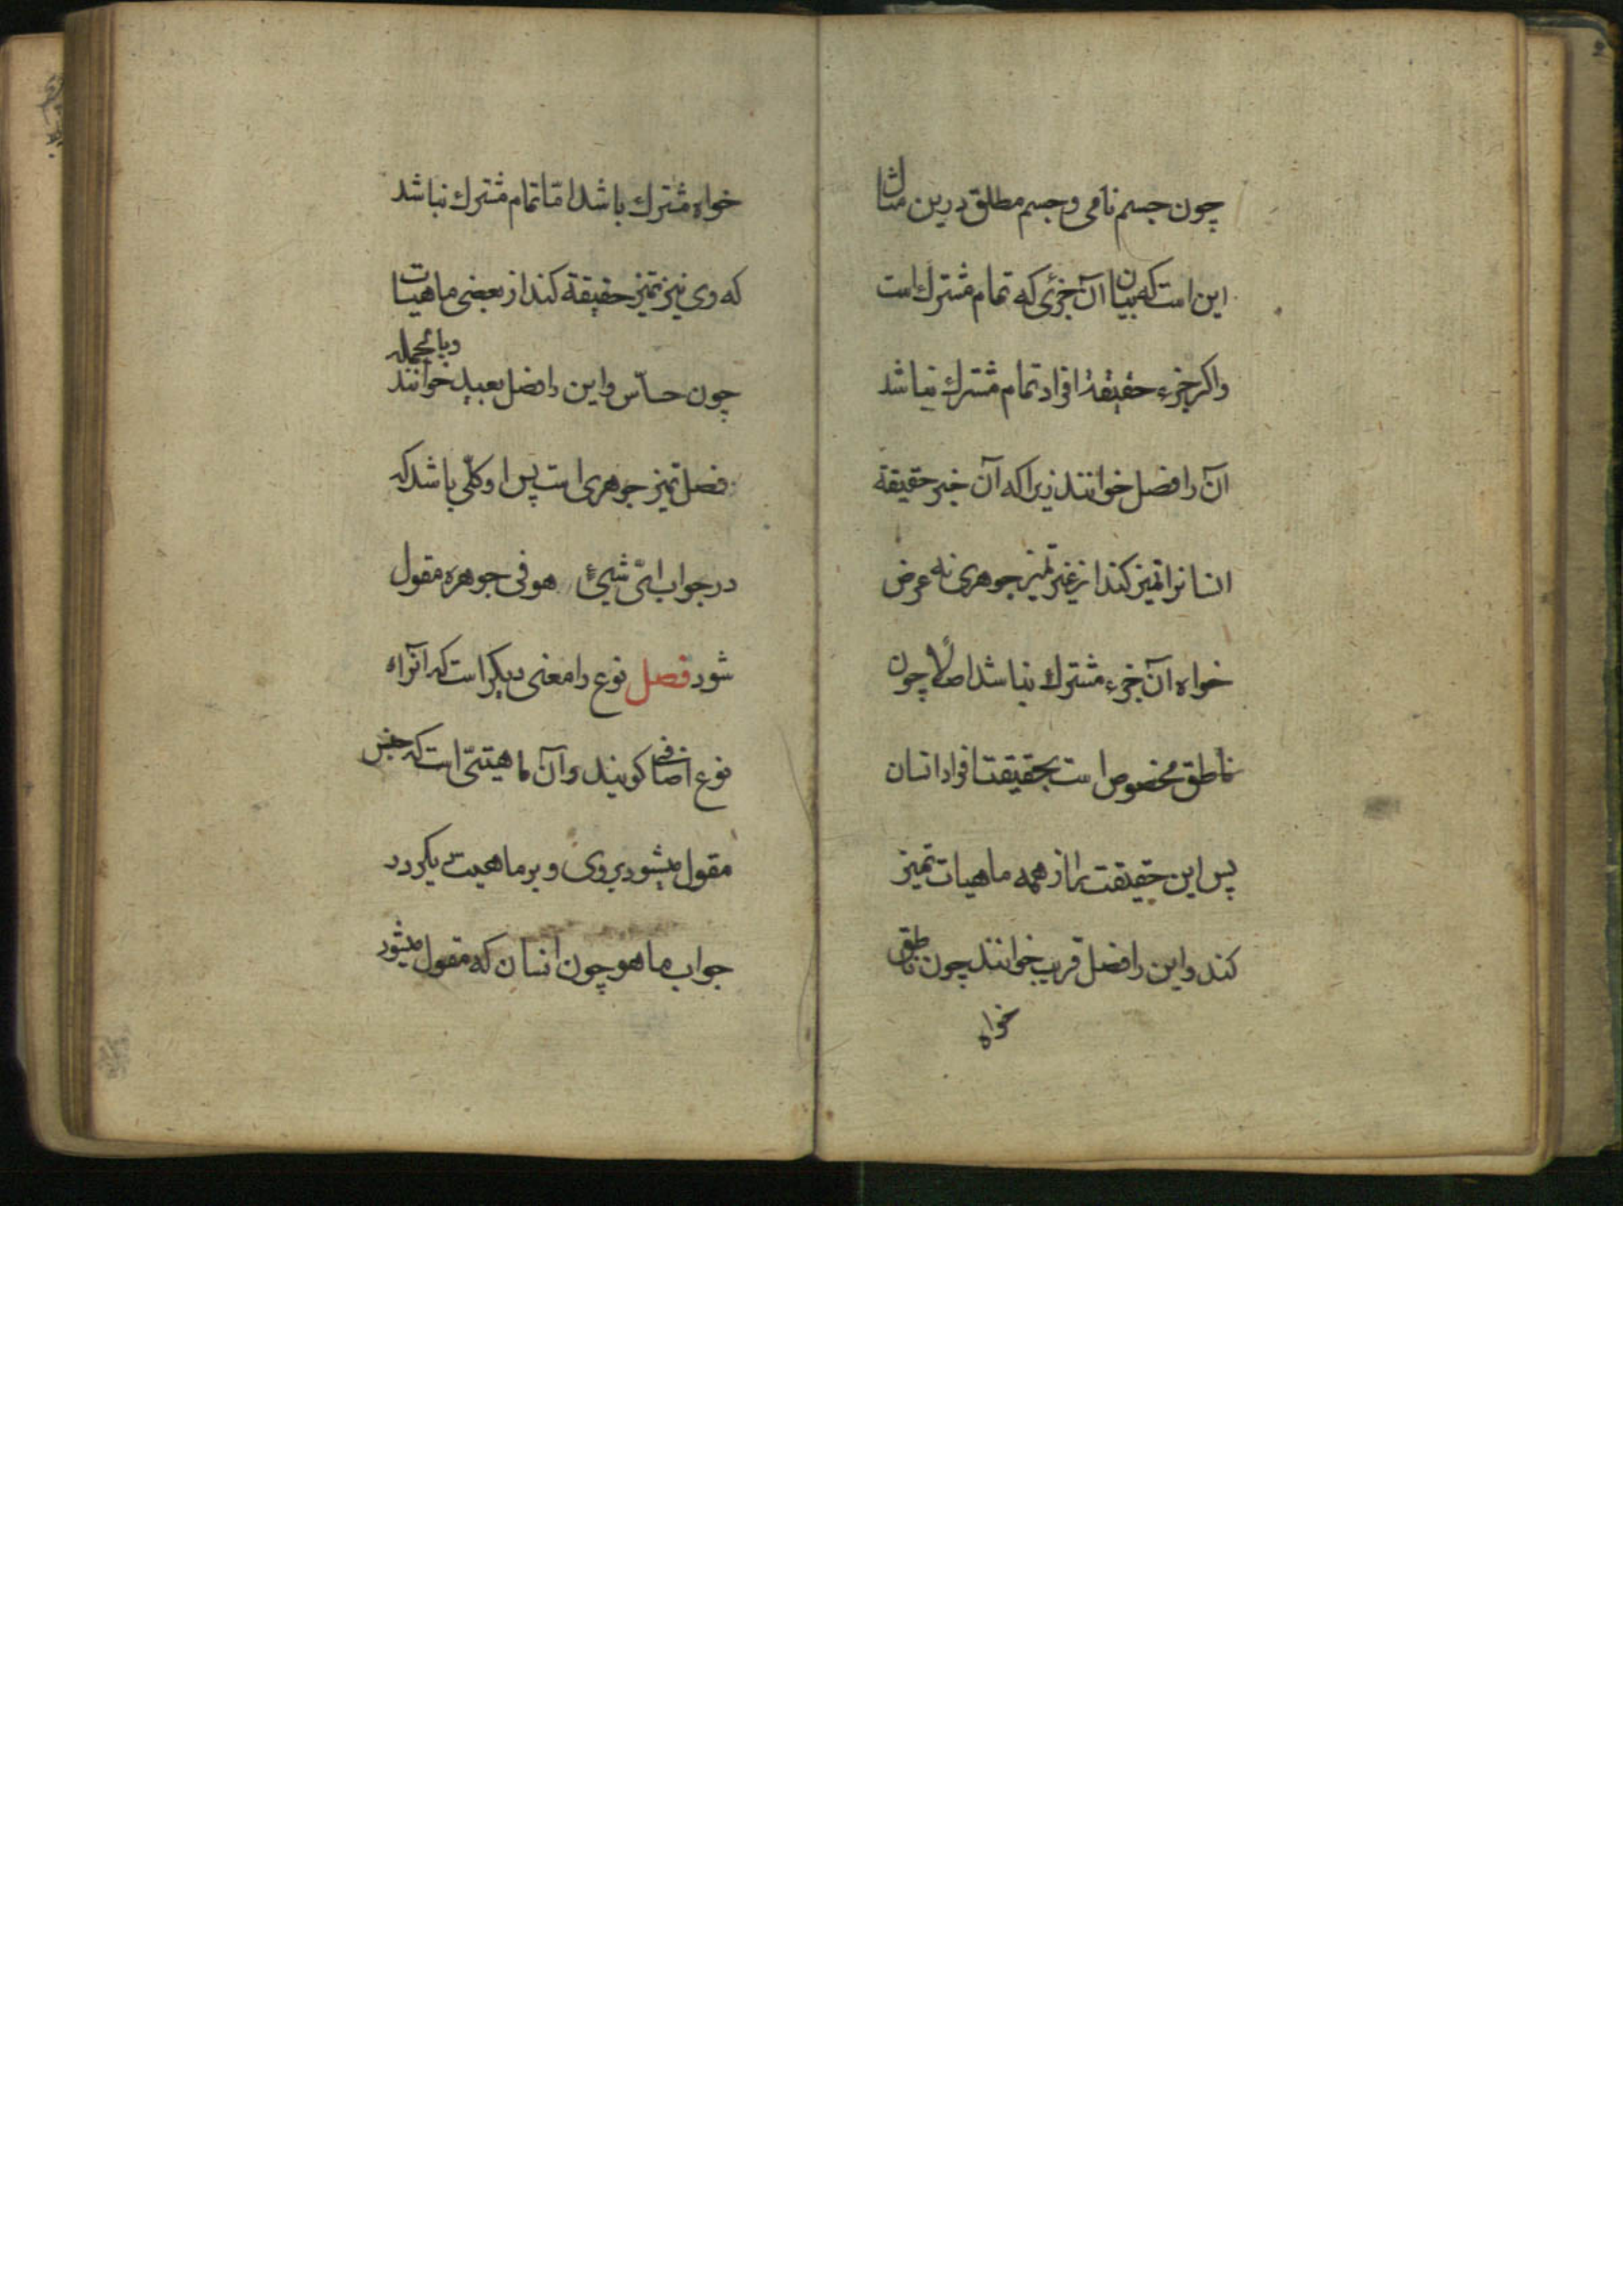 چون جسم نامی و جسم مطلق درین مثال
این است که بیان آن جزئی که تمام مشترک است
واکر جزء حقیقة افراد تمام مشترک نباشد
آن را فصل خوانند زیرا که آن حقیقة
انسانرا تمیز کند از غیر تمیز جوهری نه عرض
خواه آن جزء مشترک نباشد اصلاً چون
ناطق مخصوص است بحقیقت افراد انسان
پس این حقیقت را از همه ماهیات تمیز
کند و این را فصل قریب خوانند چون ناطق
خواه
خواه مشترک باشد امّا تمام مشترک نباشد
که وی نیز تمیز حقیقة کند از بعضی ماهیات
چون حسّاس و این را فصل بعید خوانند وبالجمله
فصل تمیز جوهری است پس او کلّی باشد که
در جواب ایّ شیئ هو فی جوهره مقول
شود فصل نوع را معنی دیکر است که آنراء
نوع اضافی کویند و آن ماهیتی است که جنس
مقول میشود بروی و بر ماهیت دیکر در
جواب ما هو چون انسان که مقول میشود